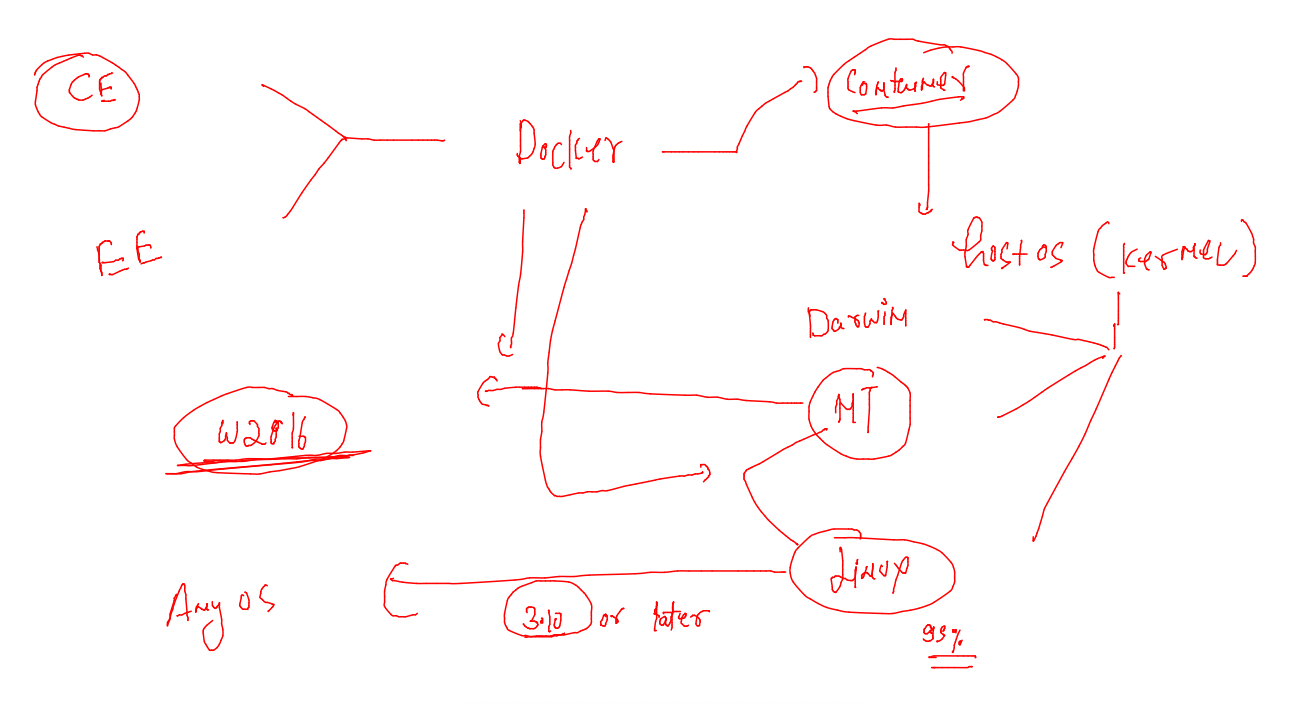 CE
Docker
Container
EE
host os (kernel)
Darwin
NT
W2016
Linux
Any OS
3.10 or later
95%